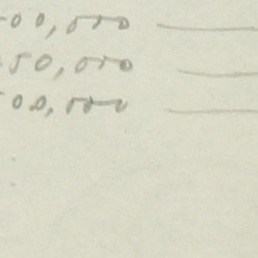 00,000
50,000
00,000